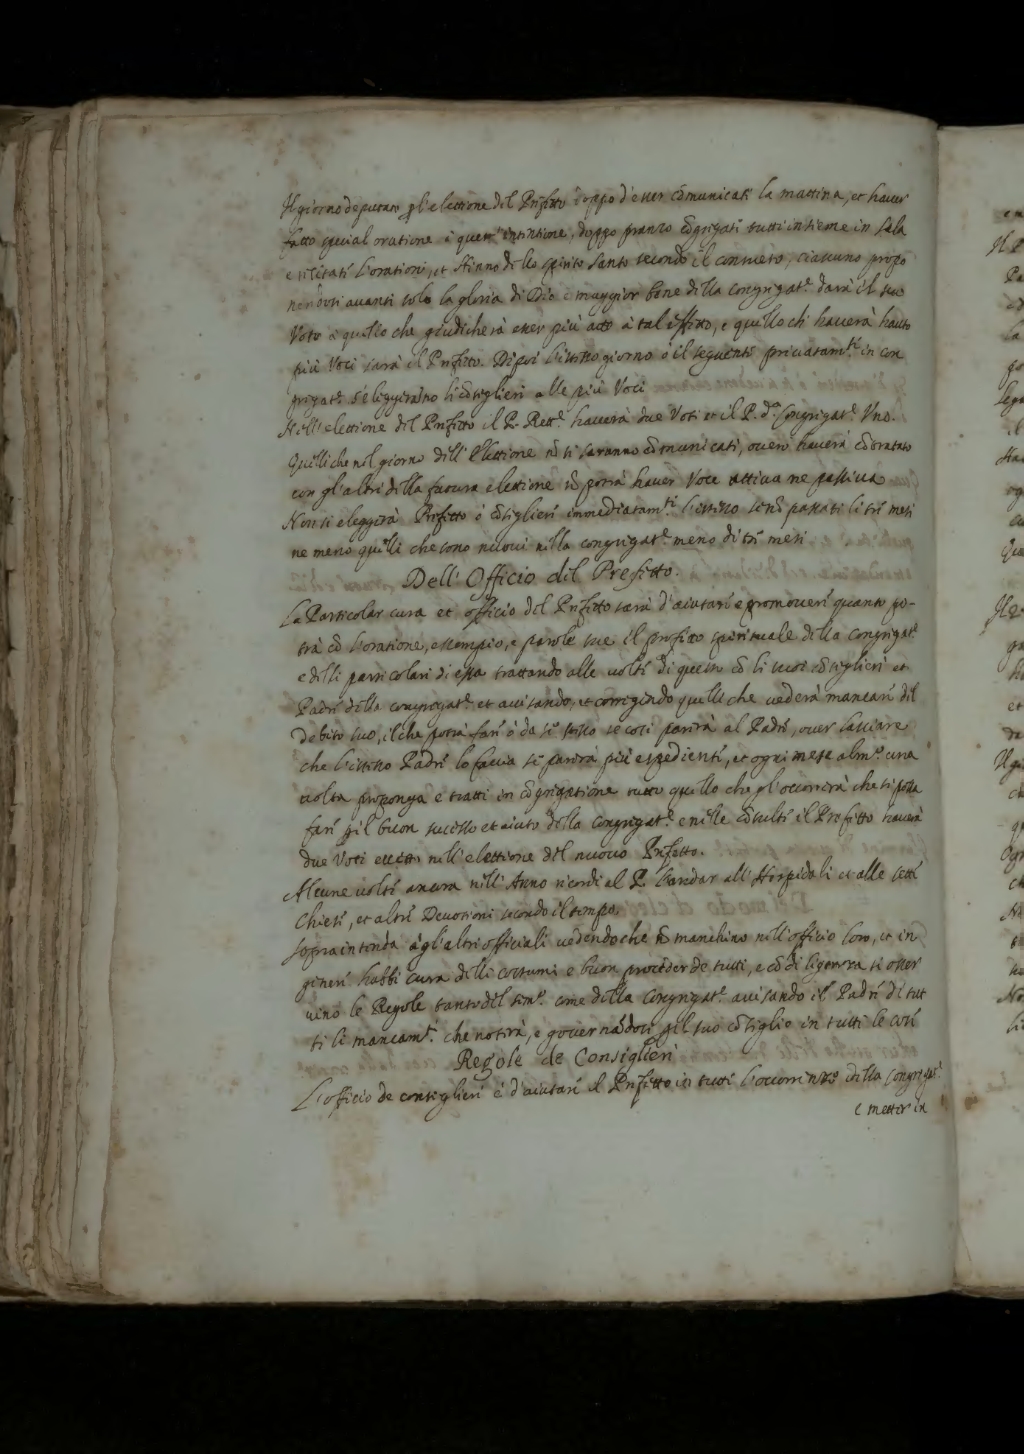 Il giorno deputato p l'elettione del Prefetto doppo d'esser cōmunicati la mattina, et haver
fatto special oratione à quest' intentione, doppo pranzo cōgregati tutti insieme in sala
e recitati l'orationi, et Hinno dello spirito santo secondo il consueto, ciascuno propo
nendosi avanti solo la gloria di Dio e maggior bene della congregat.e darà il suo
Voto à quello che giudicherà esser più atto à tal effetto, e quello chi haverà havuto
più Voci sarà il Prefetto. Di poi l'istesso giorno ò il seguente privatam.te in con
gregat.e s'eleggeranno li cōsiglieri alle più Voci
Nell'elettione del Prefetto il P. Rett.e haverà due Voti et il P. d.a Congregat.e Uno.
Quelli che nel giorno dell'Elettione nō si saranno cōmunicati, overo haverà cōtratato
con gl'altri della futura elettione nō potrà haver Voce attiva ne passiva
Non si eleggerà Prefetto ò cōsiglieri immediatam.te l'istesso se nō passati li tre mesi
ne meno quelli che sono nuovi nella congregat.e meno di tre mesi
Dell'Officio del Prefetto.
La Particolar cura et officio del Prefetto sarà d'aiutare e promovere quanto po-
trà cō l'oratione, essempio, e parole sue il profitto spirituale della congregat.e
e delli particolari di essa trattando alle volte di questo cō li suoi cōsiglieri et
Padre della congregat.e et avisando, et corrigendo quelli che vederà mancare del
debito suo, il che potrà fare ò da se stesso se così parerà al Padre, over lassiare
che l'istesso Padre lo faccia se parerà più espediente, et ogni mese alm.o una
volta proponga e tratti in cōgregatione tutto quello che gl'occorrerà che si possa
fare p il buon successo et aiuto della congregat.e e nelle cōsulte il Prefetto haverà
due Voti eccetto nell'elettione del nuovo Prefetto.
Alcune volte ancora nell'Anno ricordi al P. l'andar all'Hospidali et alle sette
Chiese, et altre Devotioni secondo il tempo.
Sopraintenda à gl'altri officiali vedendo che nō manchino nell'officio loro, et in
genere habbi cura delli costumi e buon proceder de tutti, e cō diligenza si osser
vino le Regole tanto del sem.o come della Congregat.e avisando il Padre di tut
ti li mancam.ti che noterà, e governādosi p il suo cōsiglio in tutte le cose
Regole de Consiglieri
L'officio de consiglieri é d'aiutare il Prefetto in tutte l'occorrenze della congregat.e
e metter in